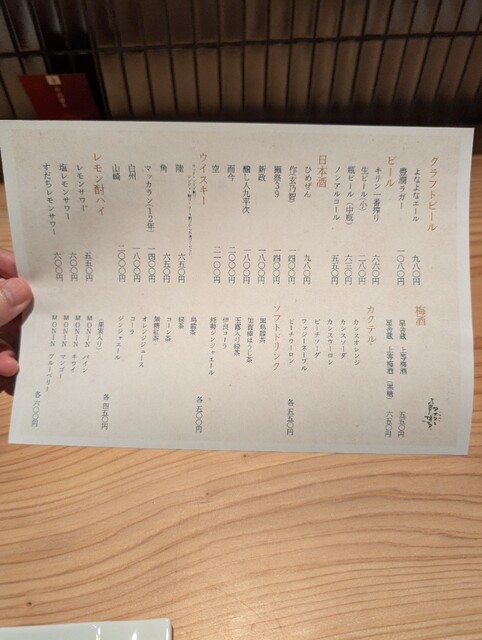 クラフトビール
よなよなエール 九八〇円
豊潤ラガー 一〇八〇円
ビール
キリン一番搾り
生ビール(小) 六三〇円
瓶ビール(中瓶)
ノンアルコール 五五〇円
日本酒
ひめぜん 九八〇円
作(玄乃智) 一四〇〇円
獺祭39 一四〇〇円
新政 一八〇〇円
醸し人九平次 一八〇〇円
而今 二〇〇〇円
空 二二〇〇円
ウイスキー
陸 六五〇円
角 六五〇円
マッカラン(12年) 一四〇〇円
白州 一八〇〇円
山崎 二〇〇〇円
レモン酎ハイ
レモンサワー 五五〇円
塩レモンサワー 六〇〇円
すだちレモンサワー 六〇〇円
梅酒
上等梅酒 五五〇円
上等梅酒(黒糖) 六五〇円
カクテル
カシスオレンジ
カシスソーダ
カシスウーロン
ピーチソーダ
ファジーネーブル
ピーチウーロン
各 五五〇円
ソフトドリンク
黒烏龍茶
加賀棒ほうじ茶
玉露入り緑茶
伊良コーラ
烏龍茶
緑茶
各 五〇〇円
コーン茶
無糖紅茶
オレンジジュース
コーラ
ジンジャエール
各 四五〇円
(果実入り)
MONIN パイン
MONIN キウイ
MONIN マンゴー
MONIN ブルーベリー
各 六〇〇円